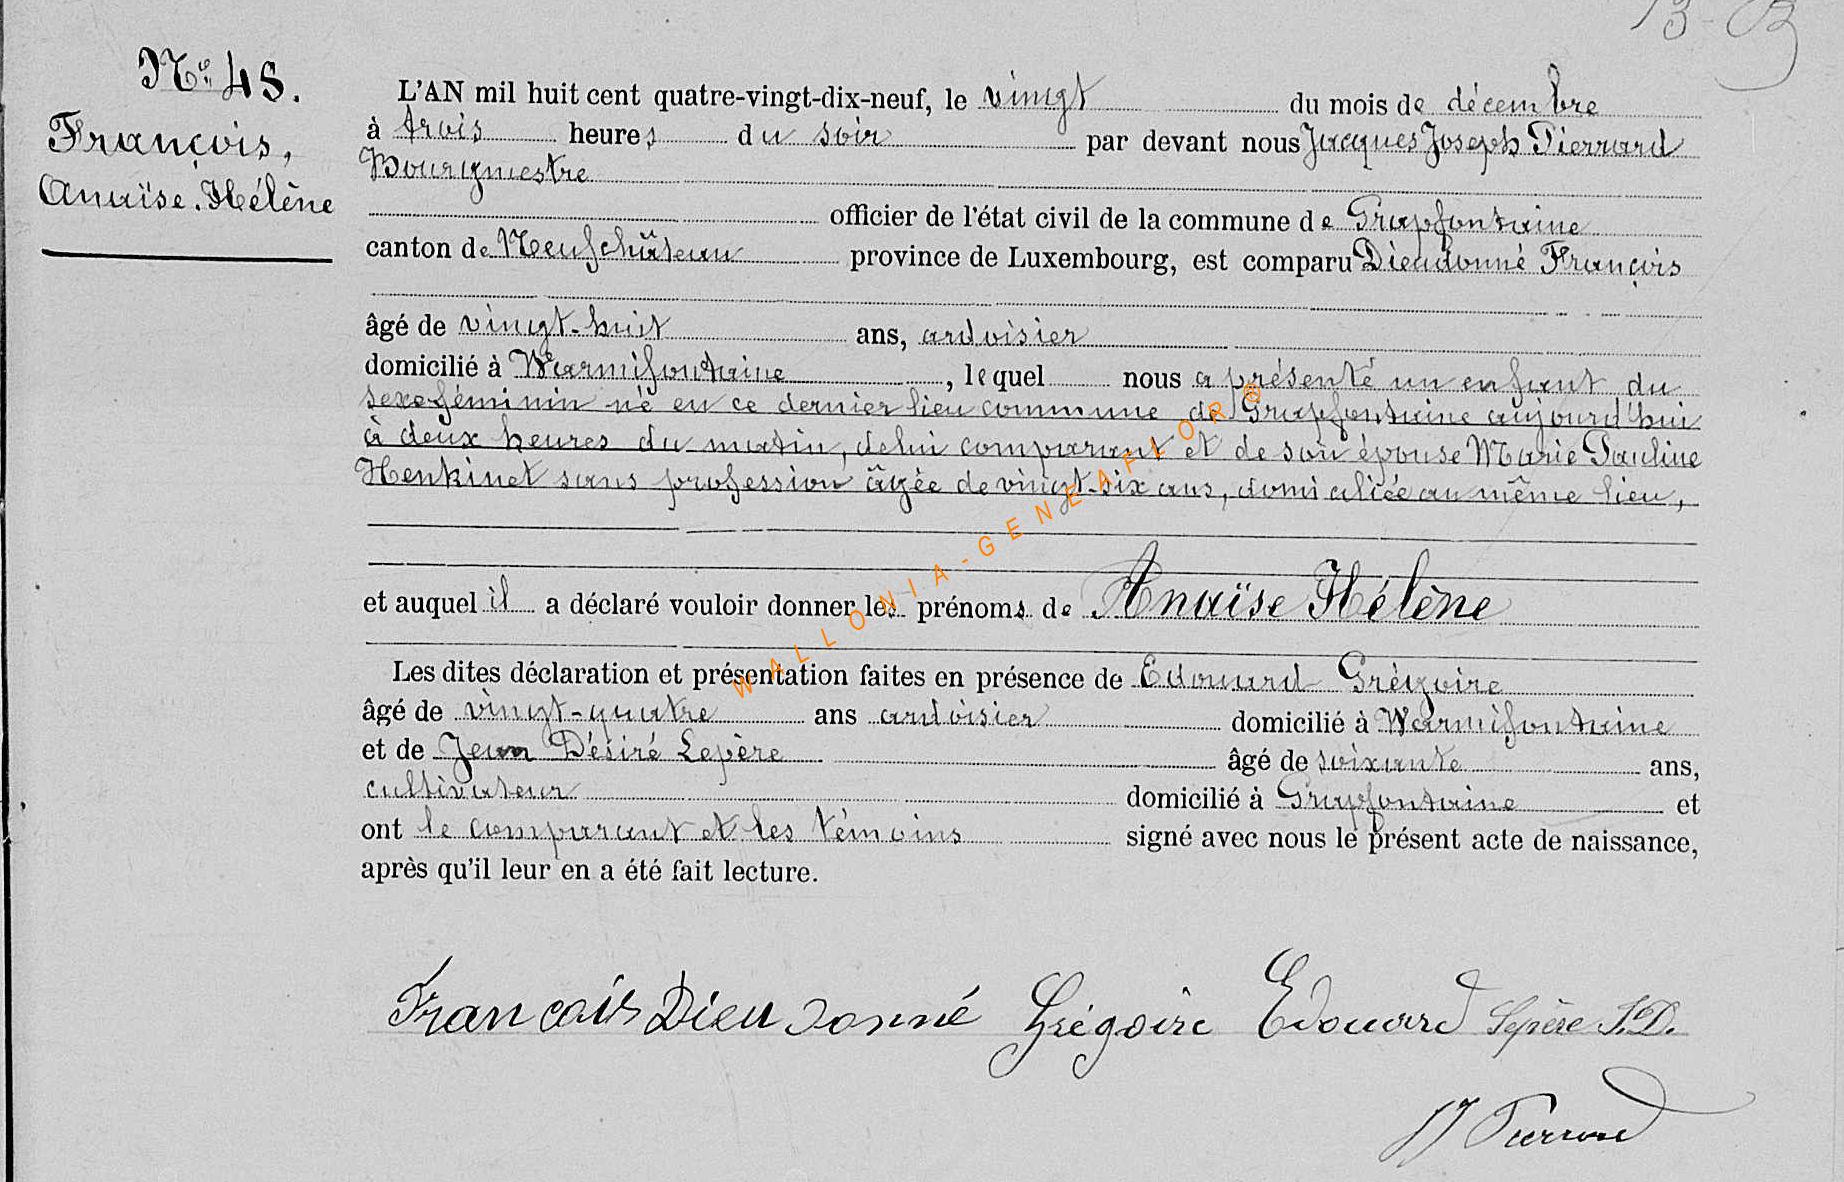 13-B
Nº 48.
François,
Anaïse Hélène
L'AN mil huit cent quatre-vingt-dix-neuf, le vingt du mois de décembre
à trois heures du soir par devant nous Jacques Joseph Pierrard
Bourgmestre
officier de l'état civil de la commune de Grapfontaine
canton de Neufchâteau province de Luxembourg, est comparu Dieudonné François
âgé de vingt-huit ans, ardoisier
domicilié à Warmifontaine, lequel nous a présenté un enfant du
sexe féminin né en ce dernier lieu commune de Grapfontaine aujourd'hui
à deux heures du matin, de lui comparant et de son épouse Marie Pauline
Henkinet sans profession âgée de vingt-six ans, domiciliée au même lieu,
et auquel il a déclaré vouloir donner les prénoms de Anaïse Hélène
Les dites déclaration et présentation faites en présence de Edouard Grégoire
âgé de vingt-quatre ans ardoisier domicilié à Warmifontaine
et de Jean Désiré Lepère âgé de soixante ans,
cultivateur domicilié à Grapfontaine et
ont le comparant et les témoins signé avec nous le présent acte de naissance,
après qu'il leur en a été fait lecture.
François Dieudonné Grégoire Edouard Lepère J.D.
JJ Pierrard
WALLONIA-GENEAFLOR ®